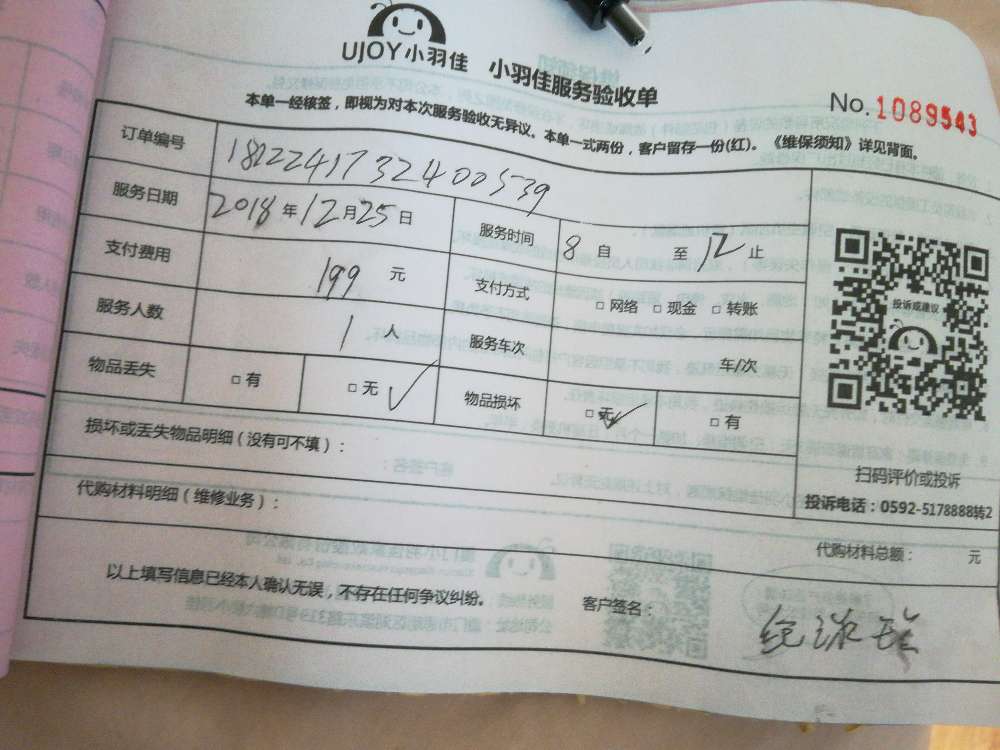 UJOY小羽佳 小羽佳服务验收单
No.1089543
本单一经核签,即视为对本次服务验收无异议。本单一式两份,客户留存一份(红)。《维保须知》详见背面。
订单编号 1812241732400539
服务日期 2018年12月25日 服务时间 8自 至12止
支付费用 199元 支付方式 □网络 □现金 □转账
服务人数 1人 服务车次 车/次
物品丢失 □有 □无✓ 物品损坏 □无✓ □有
投诉或建议
扫码评价或投诉
投诉电话:0592-5178888转2
损坏或丢失物品明细(没有可不填):
代购材料明细(维修业务):
代购材料总额: 元
以上填写信息已经本人确认无误,不存在任何争议纠纷。 客户签名: